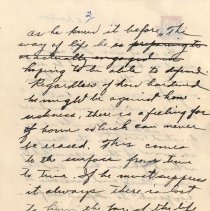 2
as he knew it before, The
way of life he is preparing to
actually engaged in
hoping to be able to defend.
Regardless of how hardened
he might be against home
sickness, there is a feeling for
of home which can never
be erased. This comes
to the surface from time
to time. If he must suppress
it always there is but